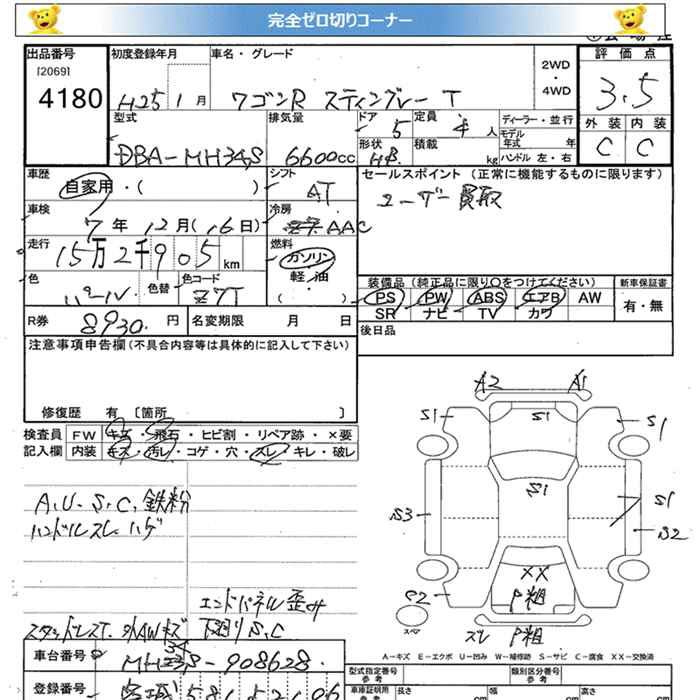 完全ゼロ切りコーナー
出品番号 初度登録年月 車名・グレード 2WD・4WD 評価点
[2069]
4180 H25 1月 ワゴンR スティングレー T 3.5
型式 排気量 ドア 5 定員 4人 ディーラー・並行 外装 内装
モデル年式 年
DBA-MH34S 6600cc 形状 HB 積載 kg ハンドル 左・右 C C
車歴 自家用・( ) シフト AT セールスポイント(正常に機能するものに限ります)
ユーザー買取
車検 7年12月(16日) 冷房 AAC
走行 15万2千905km 燃料 ガソリン
軽油
( )
色 パール 色替 色コード Z7T
装備品(純正品に限り○をつけてください) 新車保証書
PS PW ABS エアB AW 有・無
SR ナビ TV カワ
R券 8930円 名変期限 月 日 後日品
注意事項申告欄(不具合内容等は具体的に記入して下さい)
修復歴 有 〔箇所 〕
検査員 FW キズ・飛石・ヒビ割・リペア跡・×要
記入欄 内装 キズ・汚レ・コゲ・穴・スレ・キレ・破レ
A.U.S.C.鉄粉
ハンドルスレ ハゲ
エンドパネル歪み
スタッドレスT.外AWキズ 下廻りS.C
A2 A1
S1 S1 S1
S1
S3 S1
S2
XX
P粗
S2
スペア
スレ P粗
A-キズ E-エクボ U-凹み W-補修跡 S-サビ C-腐食 XX-交換済
車台番号 MH34S-908628
型式指定番号 類別区分番号
参考 参考
登録番号 宮城581
車検証明用 長さ 幅 高さ
参考 cm cm cm